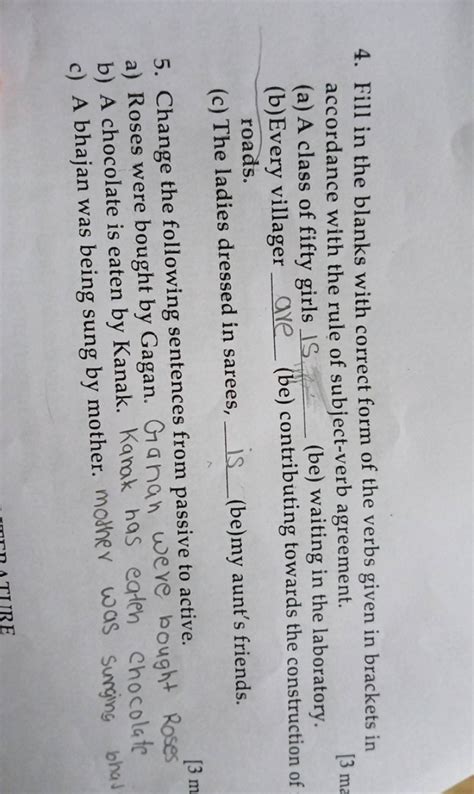 4. Fill in the blanks with correct form of the verbs given in brackets in
accordance with the rule of subject-verb agreement. [3 ma
(a) A class of fifty girls is (be) waiting in the laboratory.
(b) Every villager are (be) contributing towards the construction of
roads.
(c) The ladies dressed in sarees, is (be)my aunt's friends.
5. Change the following sentences from passive to active. [3 m
a) Roses were bought by Gagan. Ganan were bought Roses
b) A chocolate is eaten by Kanak. Kanak has eaten chocolate
c) A bhajan was being sung by mother. mother was sunging bhaj